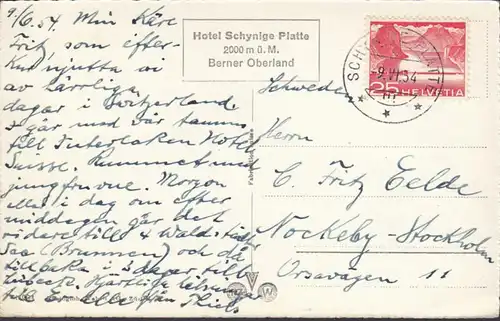 9/6.54. Min Käre
Fritz, som efter-
njutta vi
av härliga
dagar i Switzerland.
I går med vår
till Interlaken Hotel
Suisse. Rummet med
jungfrauvue. Morgon
i dag om efter
middagen går det
vidare till 4 Waldstätt
See (Brunnen) och då
tillbaka i 5 dagar till
Lübeck. Hjärtliga
till Er alle från
Hotel Schynige Platte
2000 m ü. M.
Berner Oberland
25 HELVETIA
SCHYNIGE PLATTE
-9.VI.54
Schweden
Herrn
C. Fritz Eelde
Nockeby-Stockholm
Orsavägen 11